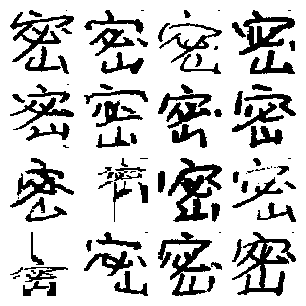 密密密密
密密密密
密密密
密密密